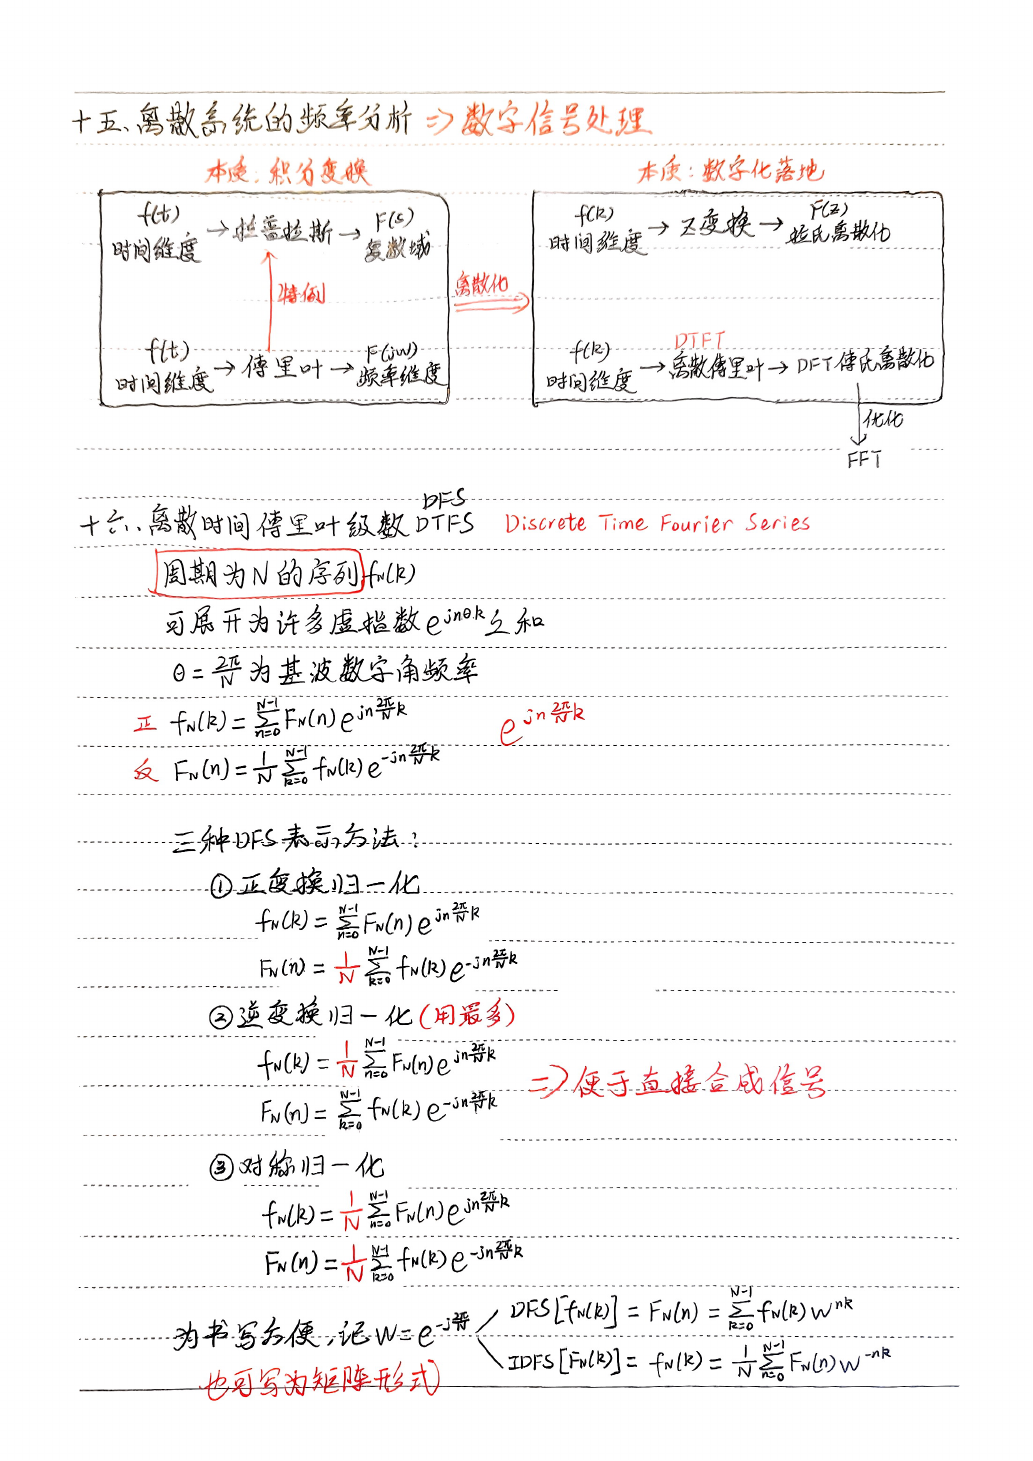 十五、离散系统的频率分析 ⇒ 数字信号处理
本质：积分变换
本质：数字化落地
f(t) 时间维度 → 拉普拉斯 → F(s) 复数域
特例
f(t) 时间维度 → 傅里叶 → F(jw) 频率维度
离散化
f(k) 时间维度 → Z变换 → F(z) 拉氏离散化
DTFT
f(k) 时间维度 → 离散傅里叶 → DFT 傅氏离散化
优化
FFT
DFS
十六、离散时间傅里叶级数 DTFS Discrete Time Fourier Series
周期为N的序列 f_N(k)
可展开为许多虚指数 e^{jnθk} 之和
θ = 2π/N 为基波数字角频率
正 f_N(k) = Σ_{n=0}^{N-1} F_N(n) e^{jn(2π/N)k} e^{jn(2π/N)k}
反 F_N(n) = 1/N Σ_{k=0}^{N-1} f_N(k) e^{-jn(2π/N)k}
三种DFS表示方法：
① 正变换归一化
f_N(k) = Σ_{n=0}^{N-1} F_N(n) e^{jn(2π/N)k}
F_N(n) = 1/N Σ_{k=0}^{N-1} f_N(k) e^{-jn(2π/N)k}
② 逆变换归一化 (用最多)
f_N(k) = 1/N Σ_{n=0}^{N-1} F_N(n) e^{jn(2π/N)k}
⇒ 便于直接合成信号
F_N(n) = Σ_{k=0}^{N-1} f_N(k) e^{-jn(2π/N)k}
③ 对称归一化
f_N(k) = 1/N Σ_{n=0}^{N-1} F_N(n) e^{jn(2π/N)k}
F_N(n) = 1/N Σ_{k=0}^{N-1} f_N(k) e^{-jn(2π/N)k}
为书写方便，记 W = e^{-j(2π/N)}
DFS[f_N(k)] = F_N(n) = Σ_{k=0}^{N-1} f_N(k) W^{nk}
IDFS[F_N(k)] = f_N(k) = 1/N Σ_{n=0}^{N-1} F_N(n) W^{-nk}
也可写为矩阵形式